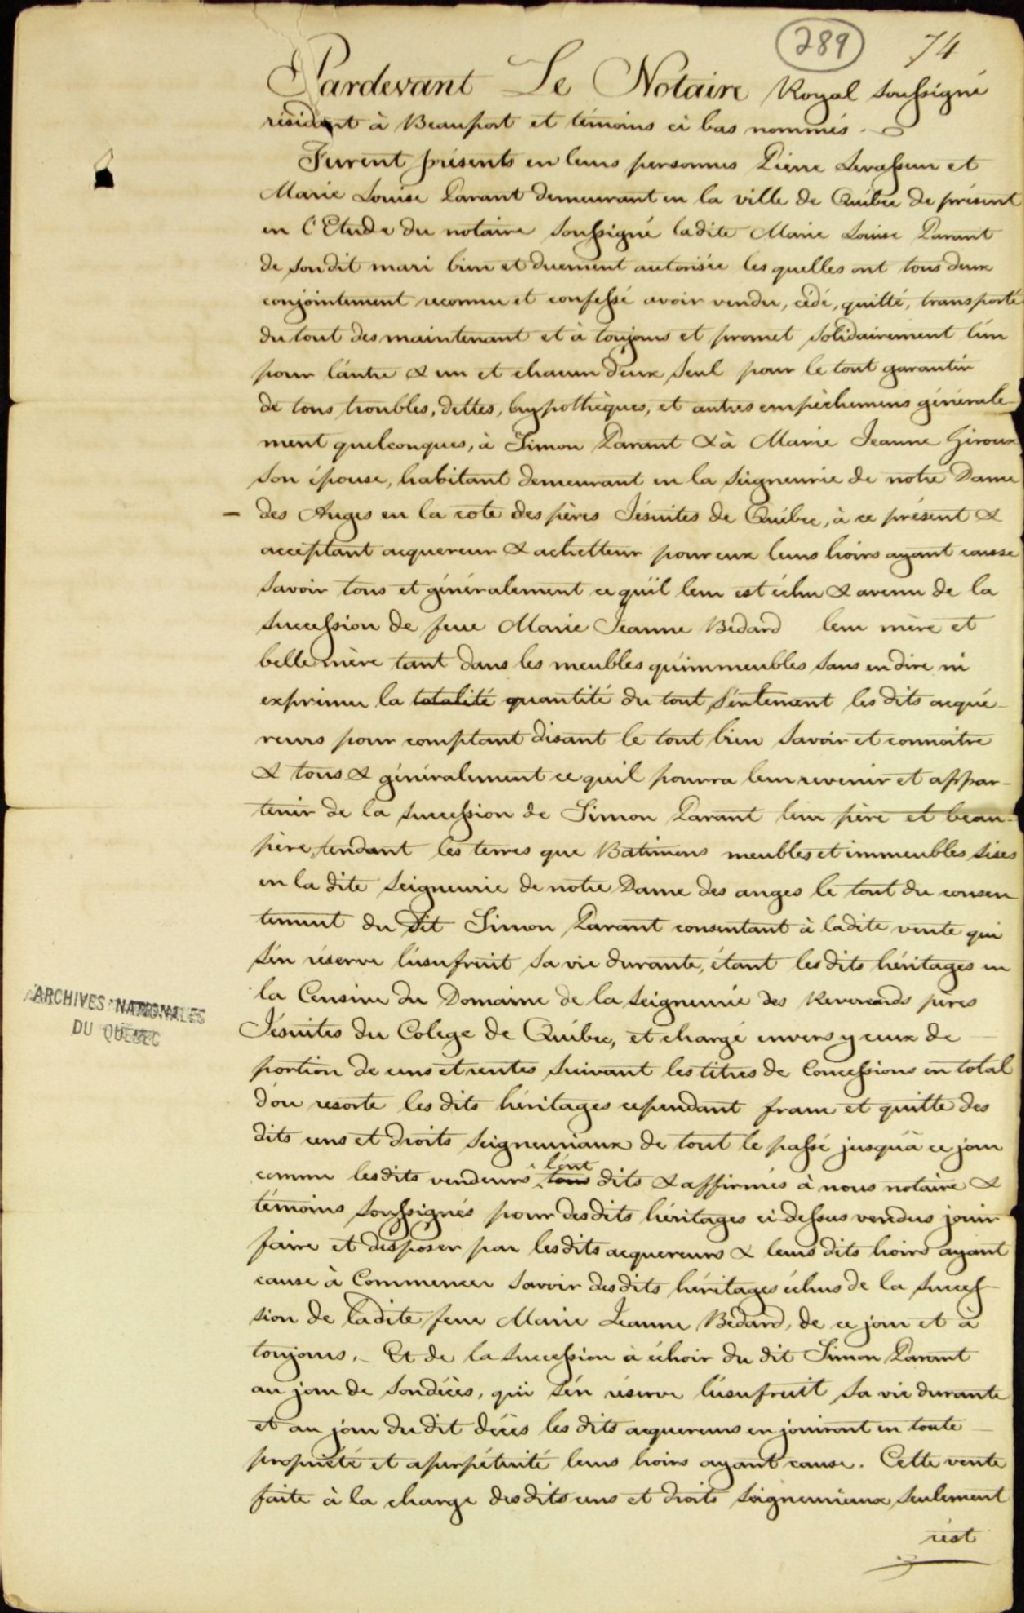 289 74
Pardevant Le Notaire Royal Soussigné
résident à Beauport et témoins ci bas nommés.
Furent présents en leurs personnes Pierre Levasseur et
Marie Louise Parant demeurant en la ville de Québec de présent
en l'Etude du notaire Soussigné ladite Marie Louise Parant
de son dit mari bien et duement autorisée lesquelles ont tous deux
conjointement reconnu et confessé avoir vendu, cédé, quitté, transporté
du tout des maintenant et à toujours et promet Solidairement l'un
pour l'autre & un et chacun d'eux Seul pour le tout garantir
de tous troubles, dettes, hypothèques, et autres empèchemens générale-
ment quelconques, à Simon Parant & à Marie Jeanne Giroux
Son épouse, habitant demeurant en la Seigneurie de notre Dame
des Anges en la cote des pères Jésuites de Québec, à ce présent &
acceptant acquereur & achetteur pour eux leurs hoirs ayant cause
Savoir tous et généralement ce qu'il leur est échu & avenu de la
Succession de feue Marie Jeanne Bedard leur mère et
belle mère tant dans les meubles qu'immeubles Sans en dire ni
exprimer la totalité quantité du tout Sentement les dits acqué-
reurs pour comptant disant le tout bien Savoir et connaitre
& tous & généralement ce quil pourra leur revenir et appar-
tenir de la Succession de Simon Parant leur père et beau-
père, tendant les terres que Batimens meubles et immeubles Sises
en la dite Seigneurie de notre Dame des anges le tout du consen
tement du dit Simon Parant consentant à ladite vente qui
S'en réserve l'usufruit Sa vie durante, étant les dits héritages en
la Censive du Domaine de la Seigneurie des Reverends pères
Jésuites du Colege de Québec, et chargé envers y ceux de
portion de cens et rentes Suivant les titres de Concessions en total
d'ou resorte les dits héritages cependant franc et quitte des
dits cens et droits Seigneuriaux de tout le passé jusqu'à ce jour
comme lesdits vendeurs tous l'ont dits & affirmés à nous notaire &
témoins Soussignés pour desdits héritages ci-dessus vendus jouir
faire et disposer par lesdits acquereurs & leurs dits hoirs ayant
cause à Commencer Savoir desdits héritages échus de la Succes-
sion de ladite feue Marie Jeanne Bedard, de ce jour et à
toujours. Et de la Succession à échoir du dit Simon Parant
au jour de Son décès, qui S'en réserve l'usufruit Sa vie durante
et au jour du dit décès les dits acquereurs en jouiront en toute
propriété et a perpétuité leurs hoirs ayant cause. Cette vente
faite à la charge desdits cens et droits Seigneuriaux Seulement
c'est
ARCHIVES NATIONALES
DU QUÉBEC